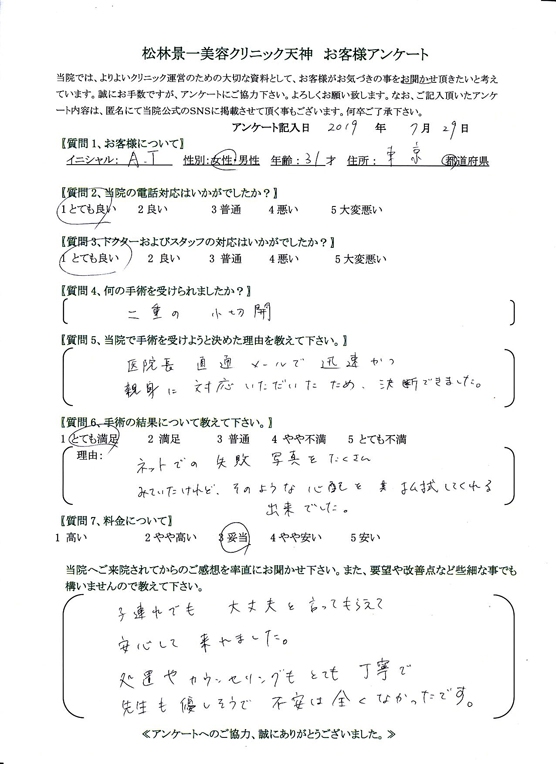 松林景一美容クリニック天神　お客様アンケート
当院では、よりよいクリニック運営のための大切な資料として、お客様がお気づきの事をお聞かせ頂きたいと考え
ています。誠にお手数ですが、アンケートにご協力下さい。よろしくお願い致します。なお、ご記入頂いたアンケ
ート内容は、匿名にて当院公式のSNSに掲載させて頂く事もございます。何卒ご了承下さい。
アンケート記入日　2019　年　7月　29日
〖質問 1、お客様について〗
イニシャル：A.T　性別：女性・男性　年齢：31才　住所：東京　都道府県
〖質問 2、当院の電話対応はいかがでしたか？〗
1 とても良い　2 良い　3 普通　4 悪い　5 大変悪い
〖質問 3、ドクターおよびスタッフの対応はいかがでしたか？〗
1 とても良い　2 良い　3 普通　4 悪い　5 大変悪い
〖質問 4、何の手術を受けられましたか？〗
二重の　小切開
〖質問 5、当院で手術を受けようと決めた理由を教えて下さい。〗
医院長　直通　メールで　迅速かつ
親身に　対応いただいたため、決断できました。
〖質問 6、手術の結果について教えて下さい。〗
1 とても満足　2 満足　3 普通　4 やや不満　5 とても不満
理由：
ネットでの　失敗　写真を　たくさん
みていたけれど、そのような心配を　払拭してくれる
出来でした。
〖質問 7、料金について〗
1 高い　2 やや高い　3 妥当　4 やや安い　5 安い
当院へご来院されてからのご感想を率直にお聞かせ下さい。また、要望や改善点など些細な事でも
構いませんので教えて下さい。
子連れでも　大丈夫と言ってもらえて
安心して　来れました。
処置やカウンセリングも　とても　丁寧で
先生も優しそうで　不安は全くなかったです。
≪アンケートへのご協力、誠にありがとうございました。≫